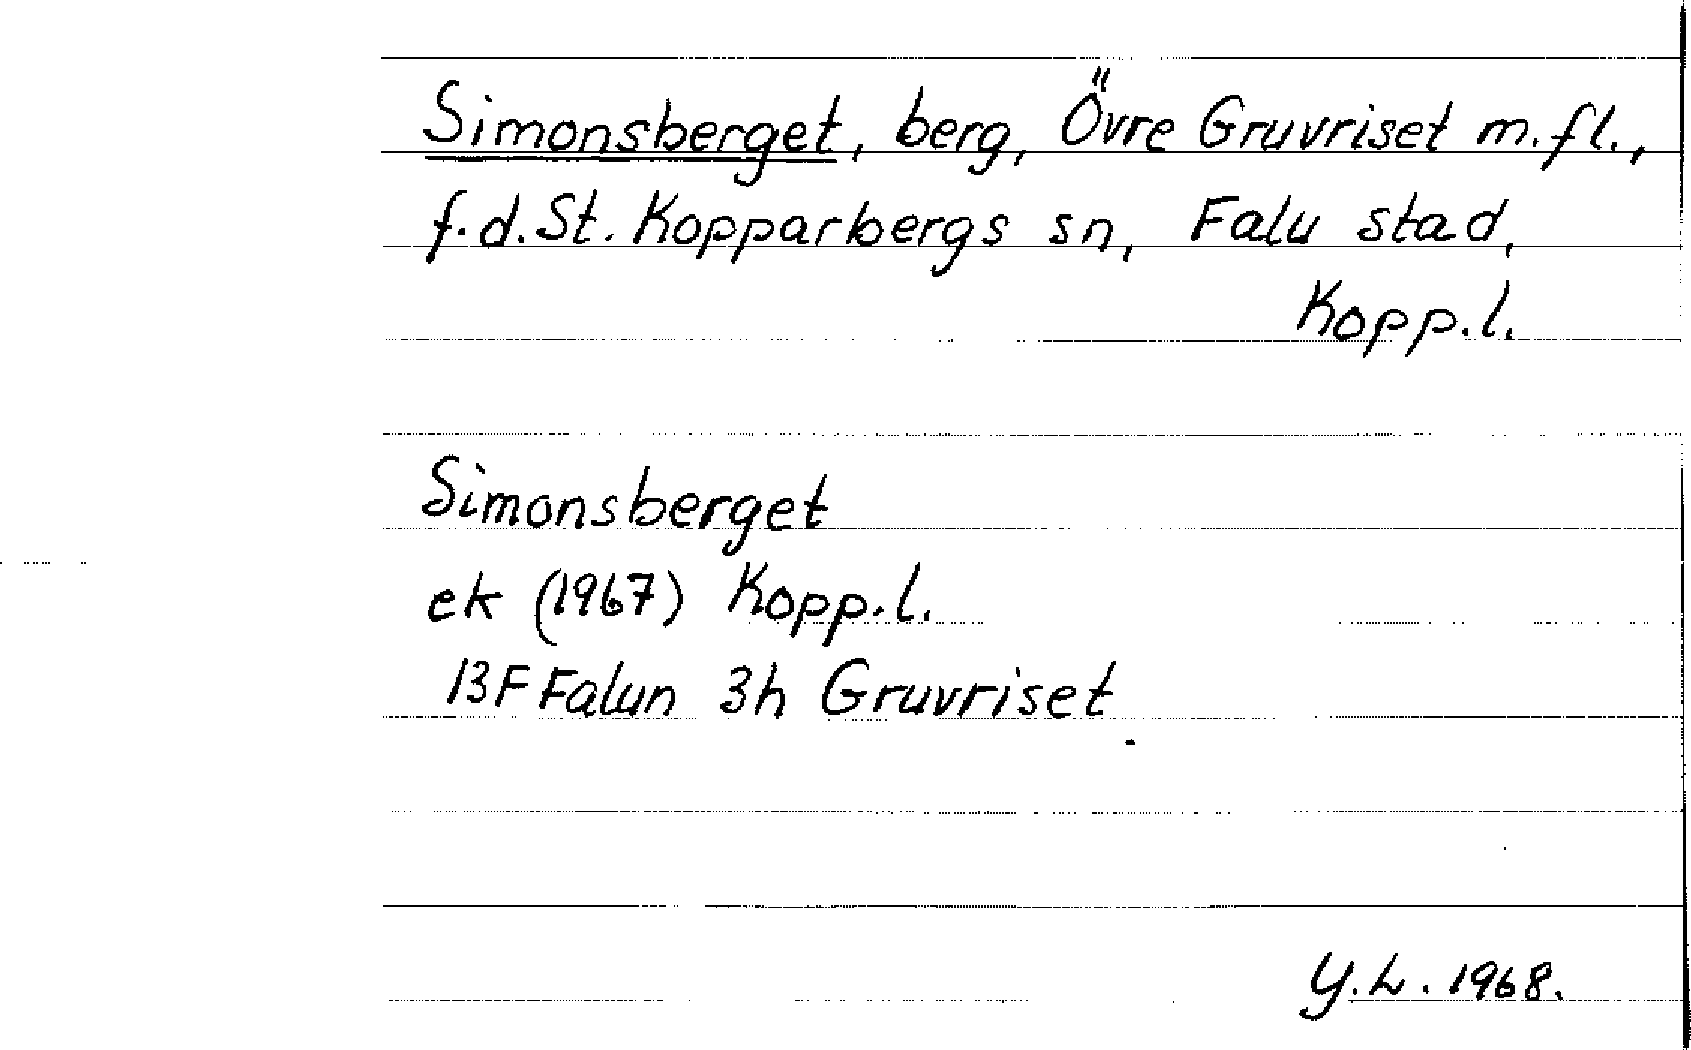 Simonsberget, berg, Övre Gruvriset m.fl.,
f.d.St. Kopparbergs sn, Falu stad,
Kopp.l.
Simonsberget
ek (1967) Kopp.l.
13F Falun 3h Gruvriset
Y.L. 1968.